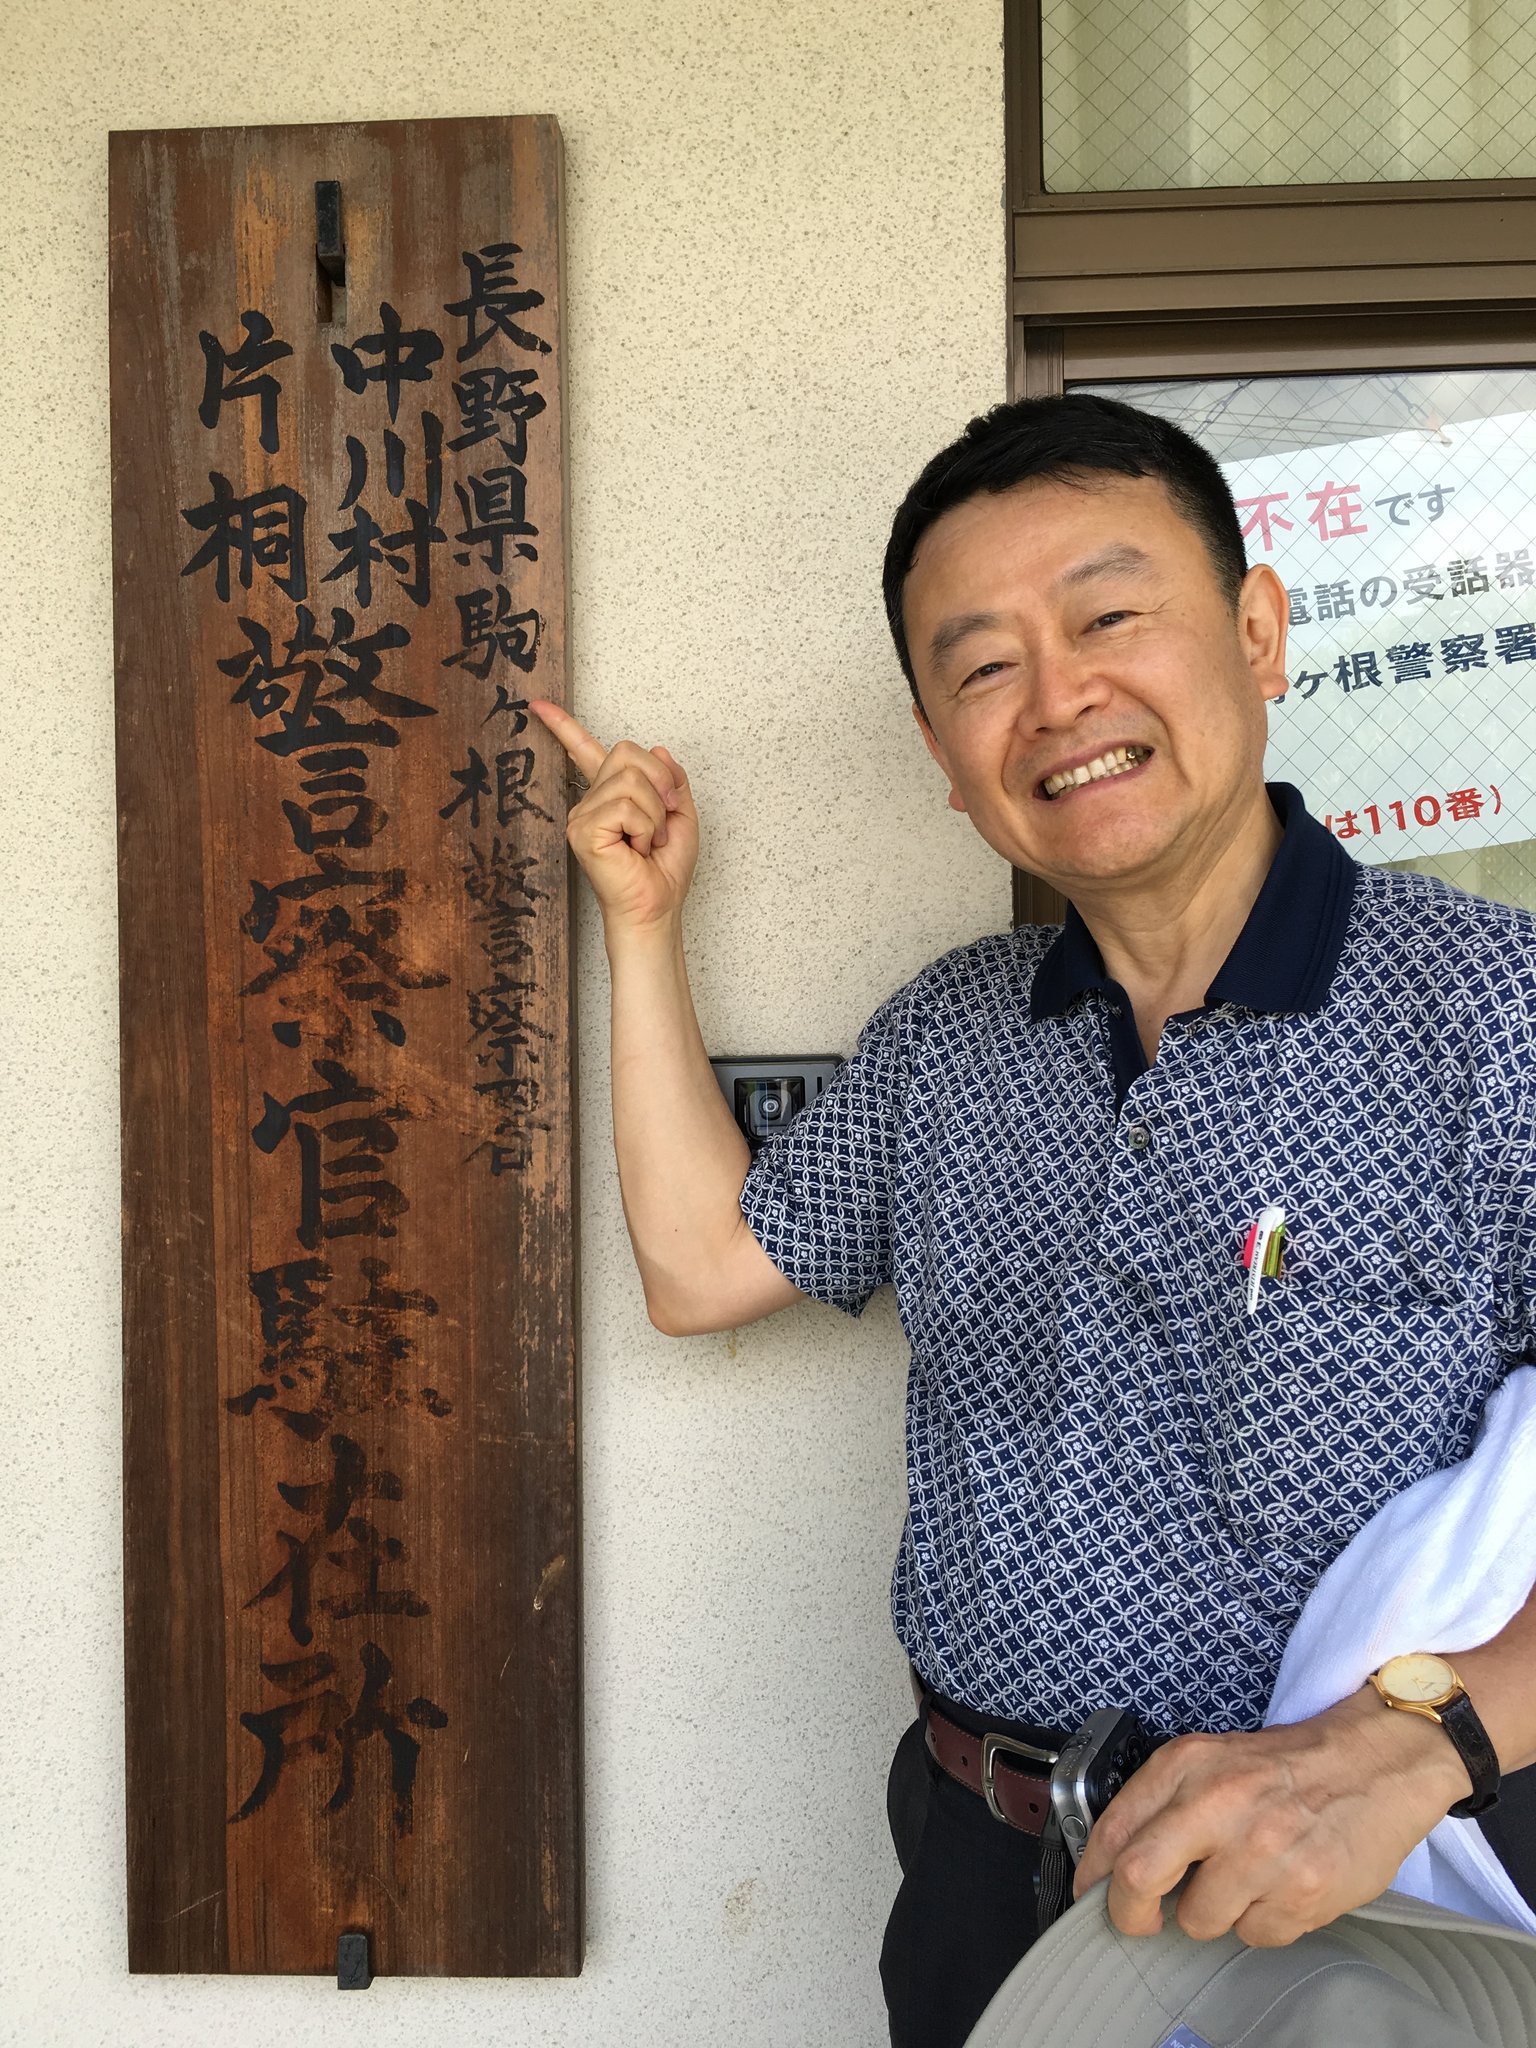 長野県駒ヶ根警察署
中川村
片桐
警察官駐在所
不在です
電話の受話器
ヶ根警察署
は110番）